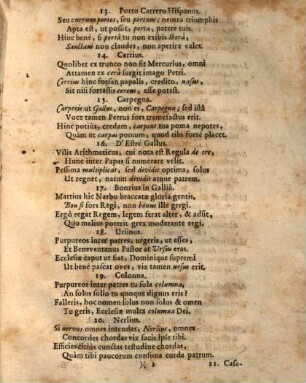 13. Porto Carrero Hispanus.
Seu currum portes, seu portum; neutra triumphis
Apta est, ut possit, porta, patere tuis.
Hinc bene, si portâ tu non exibis
Sanctam non claudes, non aperire vales.
14. Cerrius.
Quolibet ex trunco non fit Mercurius, omni
Attamen ex cerû surgit imago Petri.
Cerrius hinc fiet papalis, credito,
Sit nisi fortassis cereus, esse potest.
15. Carpegna.
Carperis ut Gallus, non es, Carpegna; sed istâ
Voce tamen Petrus fors tremefactus erit.
Hinc potius, credam, carpent tua poma nepotes,
Quàm ut carpas pomum, quod tibi forte placet.
16. D'Estrê Gallus.
Vilis Arithmeticus, cui nota est Regula de tre,
Hunc inter Papas si numerare velit.
Pessima multiplicat, sed dividit optima, solus
Ut regnet, natum dividit atque patrem.
17. Bonzius in Galliâ.
Martius hic Narbo braccatæ gloria gentis,
Bon si fors Regi, non bonus ille gregi.
Ergò regat Regem, legem ferat alter, & adsit,
Quo melius poterit grex moderante regi.
18. Ursinus.
Purpureos inter patres, urgeris, ut esses,
Et Beneventanus Pastor at Ursus eras.
Ecclesiæ caput ut fiat, Dominique supremi
Ut benè pascat oves, vix tamen ursus erit.
19. Colonna.
Purpureos inter patres tu sola columna,
An solus folio tu quoque dignus eris?
Falleris, hoc nomen solus non solus & omen
Tu geris, Ecclesiæ multa columna Dei.
20. Nerlius.
Si nervos omnes intendas, Nerlius, omnes
Concordes chordas vix facis ipse tibi.
Efficies citiùs cunctas testudine chordas,
Quàm tibi paucorum consona corda patrum.
)( 2 21. Caso-